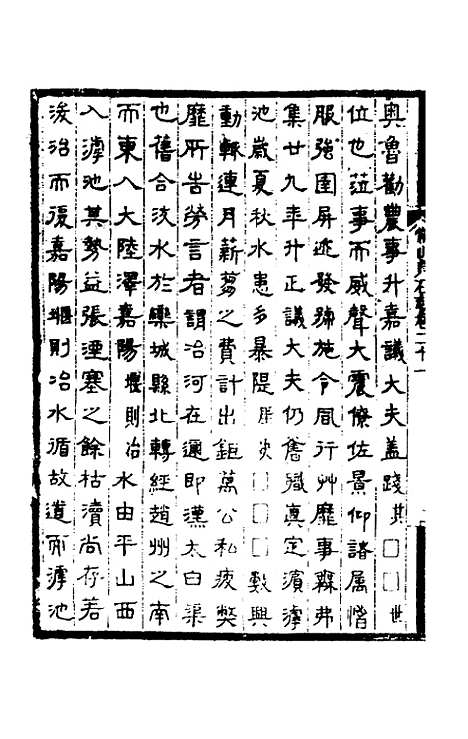 奥魯勸農事升嘉議大夫蓋踐其□□世
位也蒞事而威聲大震僚佐景仰諸属惰
服強圉屏迹發號施令風行艸靡事無弗
集廿九年升正議大夫仍舊職真定濵滹
池歲夏秋水患多暴隄屏决□□□數興
動輒連月薪芻之費計出鉅萬公私疲獘
靡所告勞言者謂冶河在邇即漢太白渠
也舊合汶水於欒城縣北轉經趙州之南
而東入大陸澤嘉陽堰則冶水由平山西
入滹池其勢益張湮塞之餘枯瀆尚存若
浚治而復嘉陽堰則冶水循故道而滹池